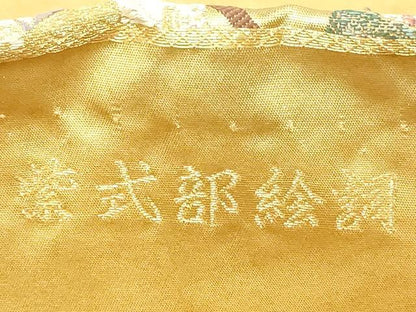 紫式部絵詞